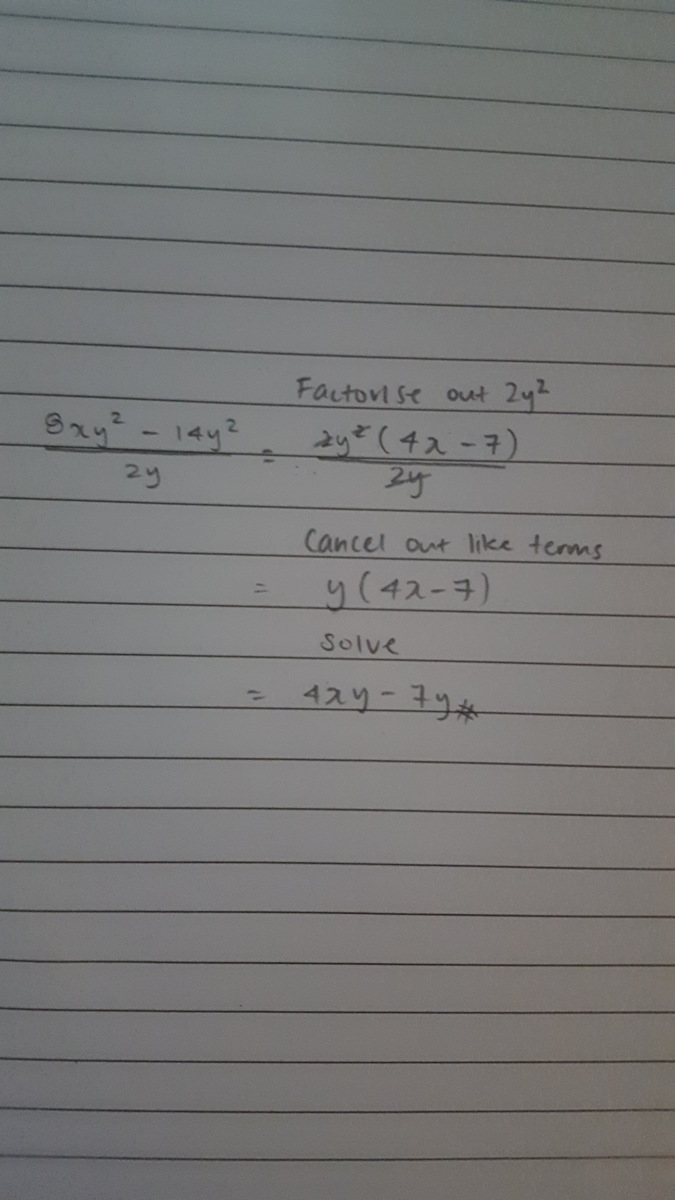 Factorise out 2y²
8xy² - 14y² / 2y = 2y²(4x - 7) / 2y
Cancel out like terms
= y(4x - 7)
Solve
= 4xy - 7y